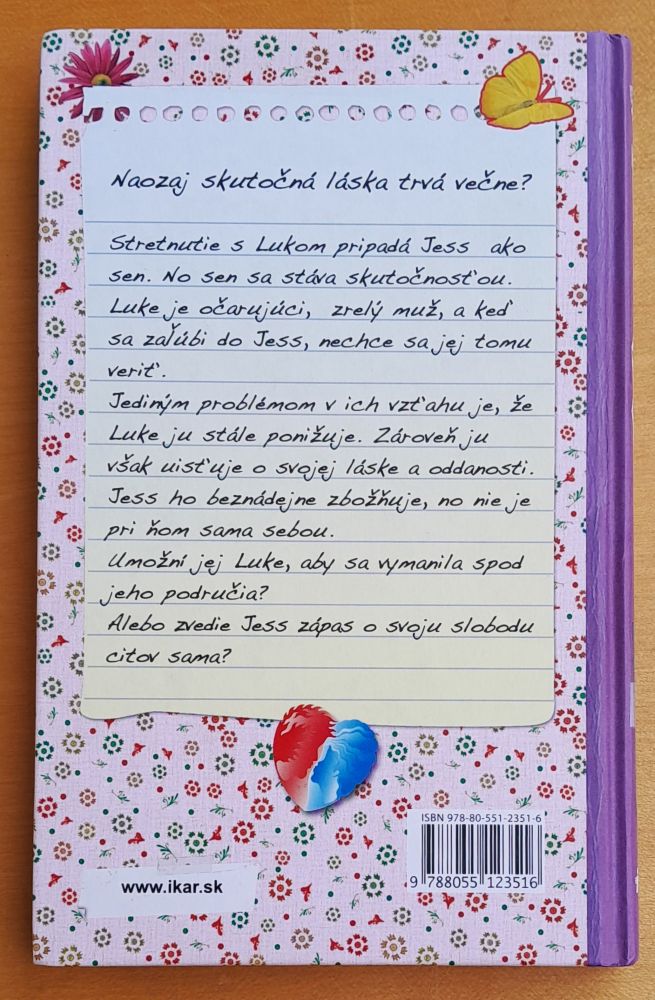 Naozaj skutočná láska trvá večne?
Stretnutie s Lukom pripadá Jess ako
sen. No sen sa stáva skutočnosťou.
Luke je očarujúci, zrelý muž, a keď
sa zaľúbi do Jess, nechce sa jej tomu
veriť.
Jediným problémom v ich vzťahu je, že
Luke ju stále ponižuje. Zároveň ju
však uisťuje o svojej láske a oddanosti.
Jess ho beznádejne zbožňuje, no nie je
pri ňom sama sebou.
Umožní jej Luke, aby sa vymanila spod
jeho područia?
Alebo zvedie Jess zápas o svoju slobodu
citov sama?
ISBN 978-80-551-2351-6
9 788055 123516
www.ikar.sk